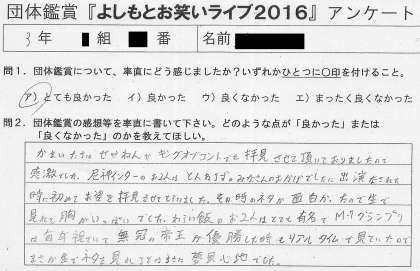 団体鑑賞『よしもとお笑いライブ2016』アンケート
3年 組 番 名前
問1. 団体鑑賞について、率直にどう感じましたか?いずれかひとつに〇印を付けること。
ア) とても良かった イ) 良かった ウ) 良くなかった エ) まったく良くなかった
問2. 団体鑑賞の感想等を率直に書いて下さい。どのような点が「良かった」または
「良くなかった」のかを教えてほしい。
かまいたちは せやねんや キングオブコントでも 拝見させて頂いておりましたので
感激でした。尼神インターのお2人は とんねるずのみなさんのおかげでした に出演なされた
時に初めてお姿を拝見させてもらいました。その時のネタが面白かったので生で
見れて胸がいっぱいでした。わらい飯のお2人はとても有名で M-1グランプリ
は毎年視ていて 無冠の帝王が優勝した時もリアルタイムで見ていたので
まさか生でネタを見れるとはまた夢見心地でした。